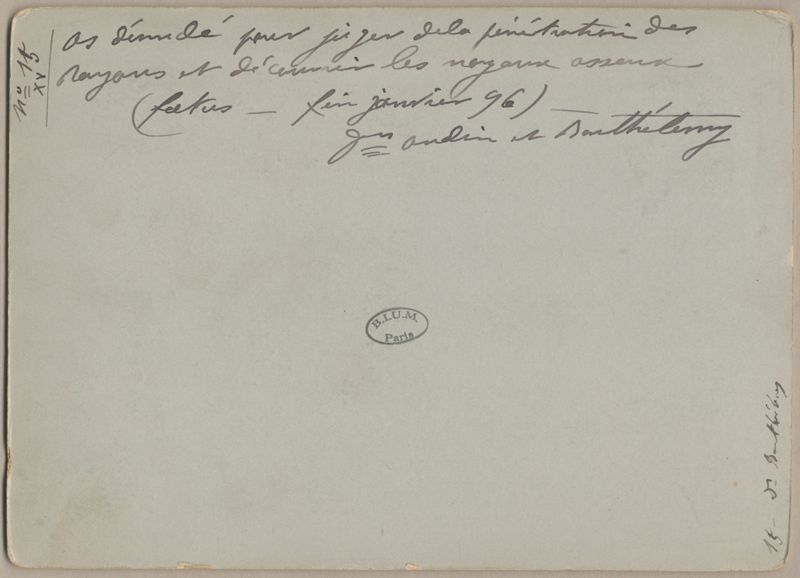 No 15
XV
os dénudé pour juger de la pénétration des
rayons et découvrir les noyaux osseux
(foetus — fin janvier 96) —
Drs oudin et Barthélemy
B.I.U.M.
Paris
15 - Dr Barthélemy